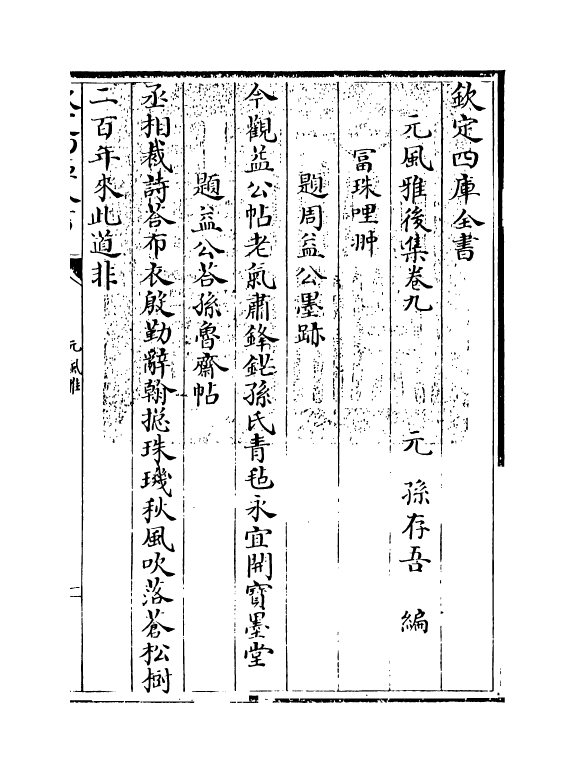 欽定四庫全書
元風雅後集卷九
元 孫存吾 編
冨珠哩翀
題周益公墨跡
今觀益公帖老氣肅鋒鋩孫氏青毡永宜開寶墨堂
題益公荅孫魯齋帖
丞相裁詩荅布衣殷勤辭翰揔珠璣秋風吹落蒼松樹
二百年來此道非
元風雅